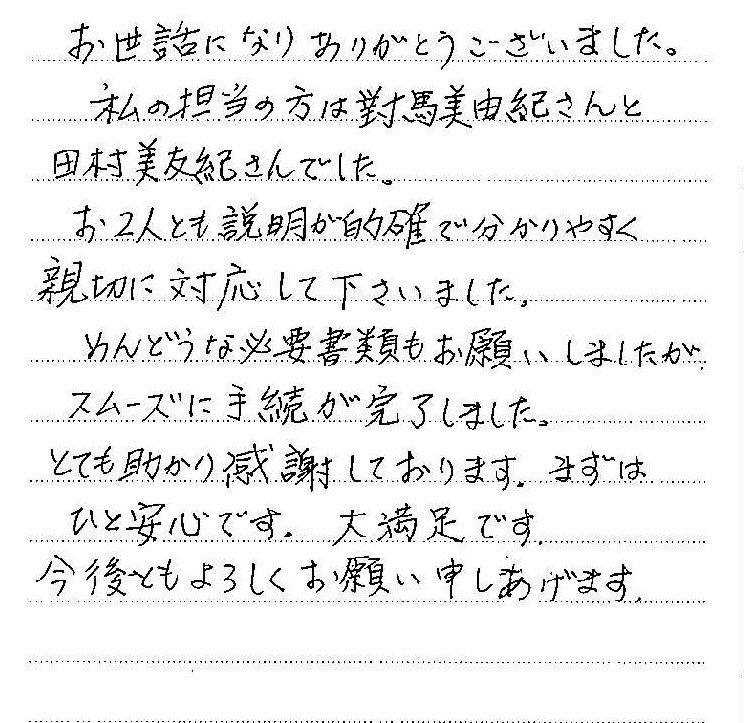 お世話になりありがとうございました。
私の担当の方は對馬美由紀さんと
田村美友紀さんでした。
お2人とも説明が的確で分かりやすく
親切に対応して下さいました。
めんどうな必要書類もお願いしましたが、
スムーズに手続が完了しました。
とても助かり感謝しております。まずは
ひと安心です。大満足です。
今後ともよろしくお願い申しあげます。